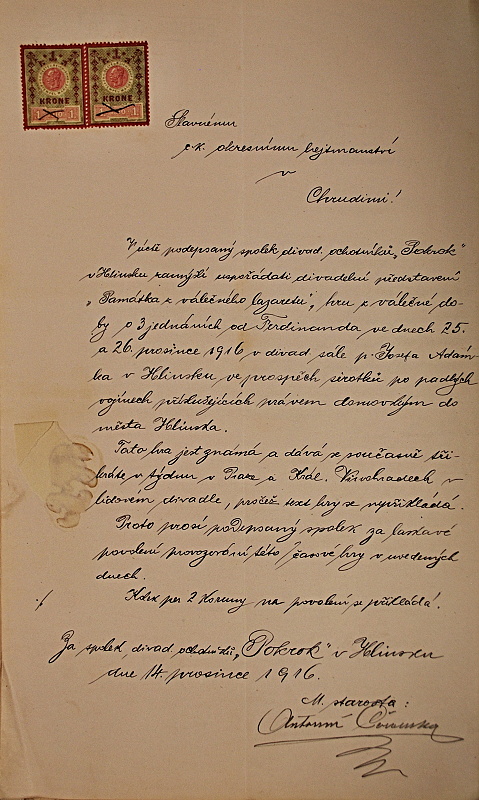 1 1
KRONE KRONE
1 1 1 1
Slavnému
c.k. okresnímu hejtmanství
v
Chrudimi!
V úctě podepsaný spolek divad. ochotníků „Pokrok"
v Hlinsku zamýšlí uspořádati divadelní představení
„Památka z válečného lazaretu", hru z válečné do-
by o 3 jednáních od Ferdinanda ve dnech 25.
a 26. prosince 1916 v divad. sále p. Josefa Adám-
ka v Hlinsku ve prospěch sirotků po padlých
vojínech příslušejících právem domovským do
města Hlinska.
Tato hra jest známá a dává se současně tři-
kráte v týdnu v Praze a Král. Vinohradech v
lidovém divadle, pročež text hry se nepřikládá.
Proto prosí podepsaný spolek za laskavé
povolení provozování této časové hry v uvedených
dnech.
Kolek per 2 Koruny na povolení se přikládá.
Za spolek divad. ochotníků „Pokrok" v Hlinsku
dne 14. prosince 1916.
M. starosta:
Antonín